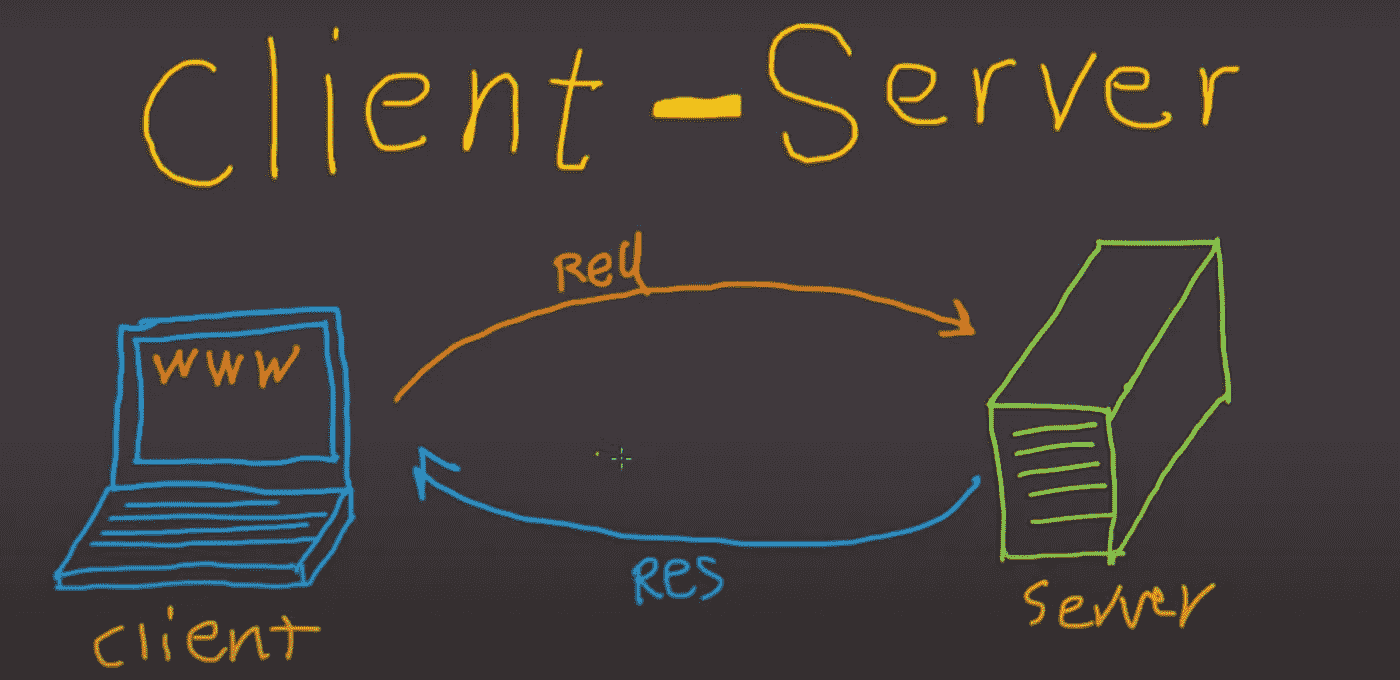 Client-Server
REQ
WWW
RES
client
Server